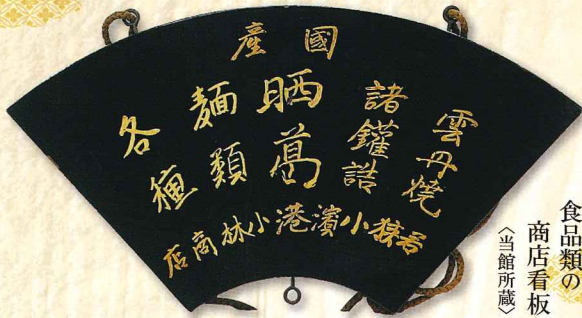 國產
雲丹燒
諸鑵詰
晒葛
麵類
各種
若狹小濱港小林商店
食品類の
商店看板
〈当館所蔵〉